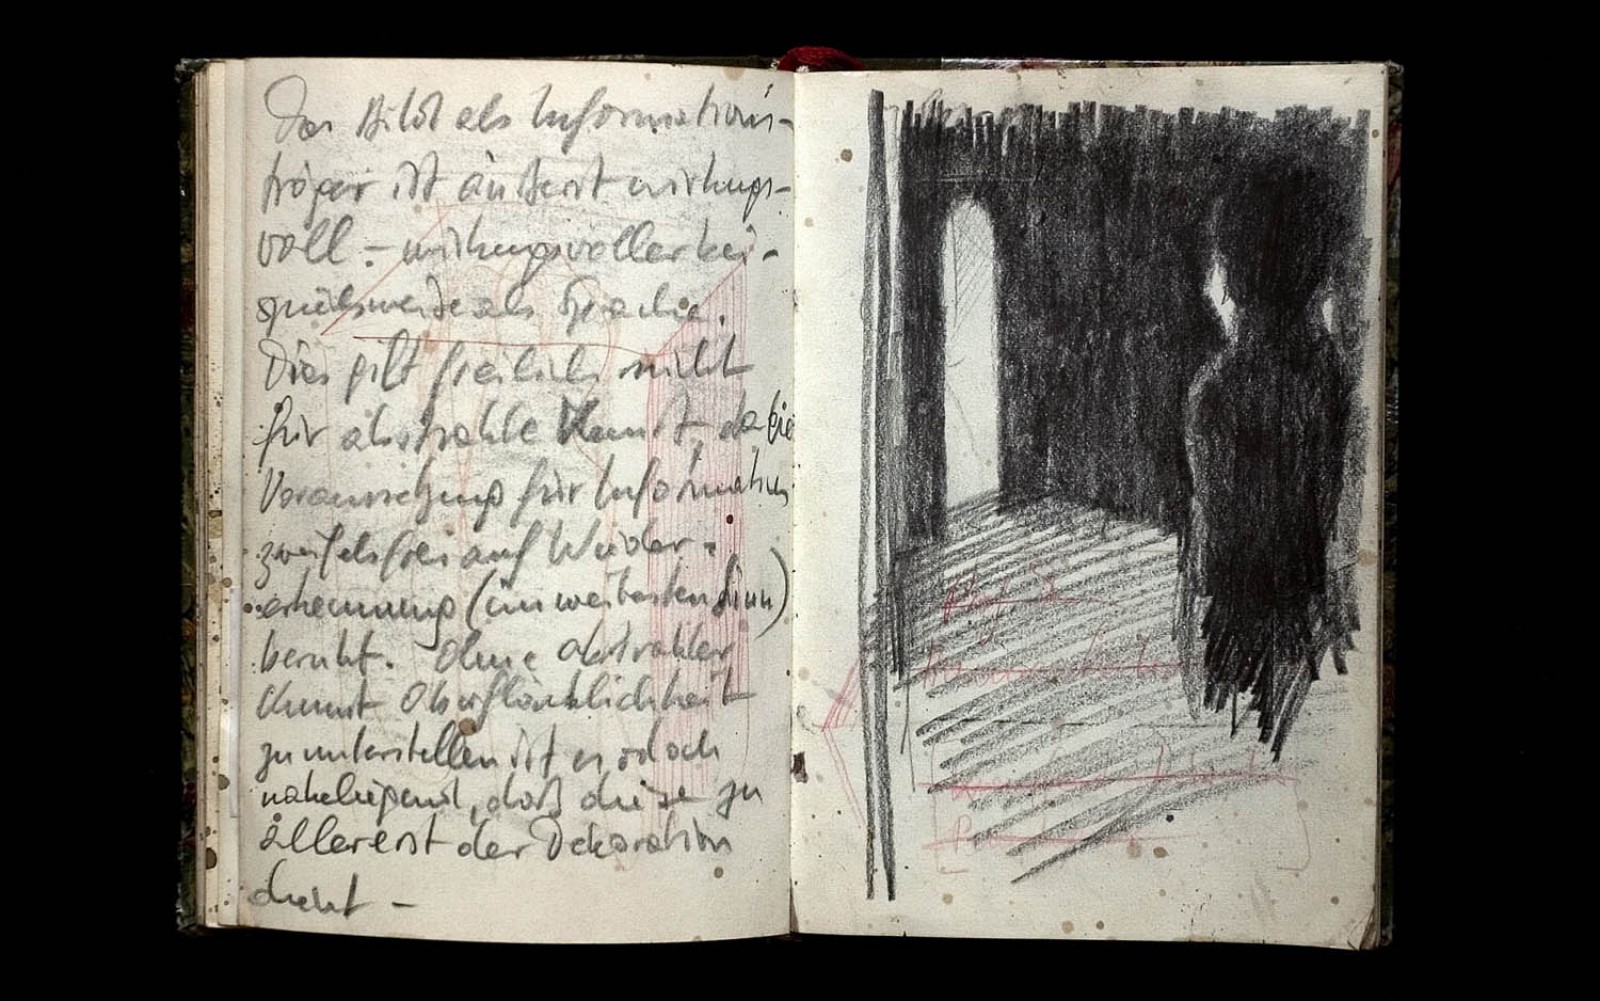 Das Bild als Informations-
träger ist äußerst wirkungs-
voll - wirkungsvoller bei-
spielsweise als Sprache.
Dies gilt freilich nicht
für abstrakte Kunst, da die
Voraussetzung für Information
zweifelsfrei auf Wieder-
erkennung (im weitesten Sinn)
beruht. Ohne abstrakter
Kunst Oberflächlichkeit
zu unterstellen ist es doch
naheliegend, daß diese zu
allererst der Dekoration
dient -